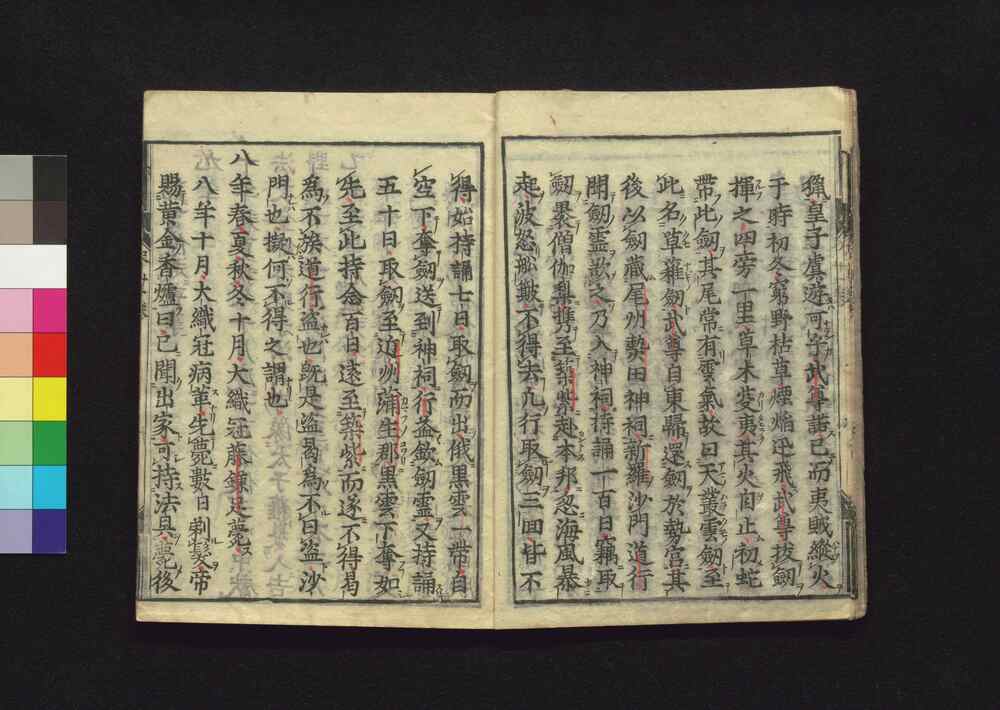 獵皇子虞遊可乎武尊諾已而夷賊縱火
于時初冬窮野枯草煙焔迅飛武尊拔劔
揮之四旁一里草木芟夷其火自止初蛇
帶此劔其尾常有雲氣故曰天叢雲劔至
此名草薙劔武尊自東歸還劔於勢宮其
後以劔藏尾州熱田神祠新羅沙門道行
聞劔靈欲之乃入神祠持誦一百日竊取
劔裹僧伽梨携至築紫赴本邦忽海風暴
起波怒船艱不得去凡行取劔三回皆不
得始持誦七日取劔而出俄黑雲一帶自
空下奪劔送到神祠行益歛劔靈又持誦
五十日取劔至迫州蒲生郡黑雲下奪如
先至此持念百日遠至築紫而遂不得曷
爲不族道行盜也既是盜曷爲不曰盜沙
門也擬何不得之謂也
八年春夏秋冬十月大織冠藤鎌足薨
八年十月大織冠病革先薨數日剃髮帝
賜黃金香爐曰已聞出家可持法具薨後